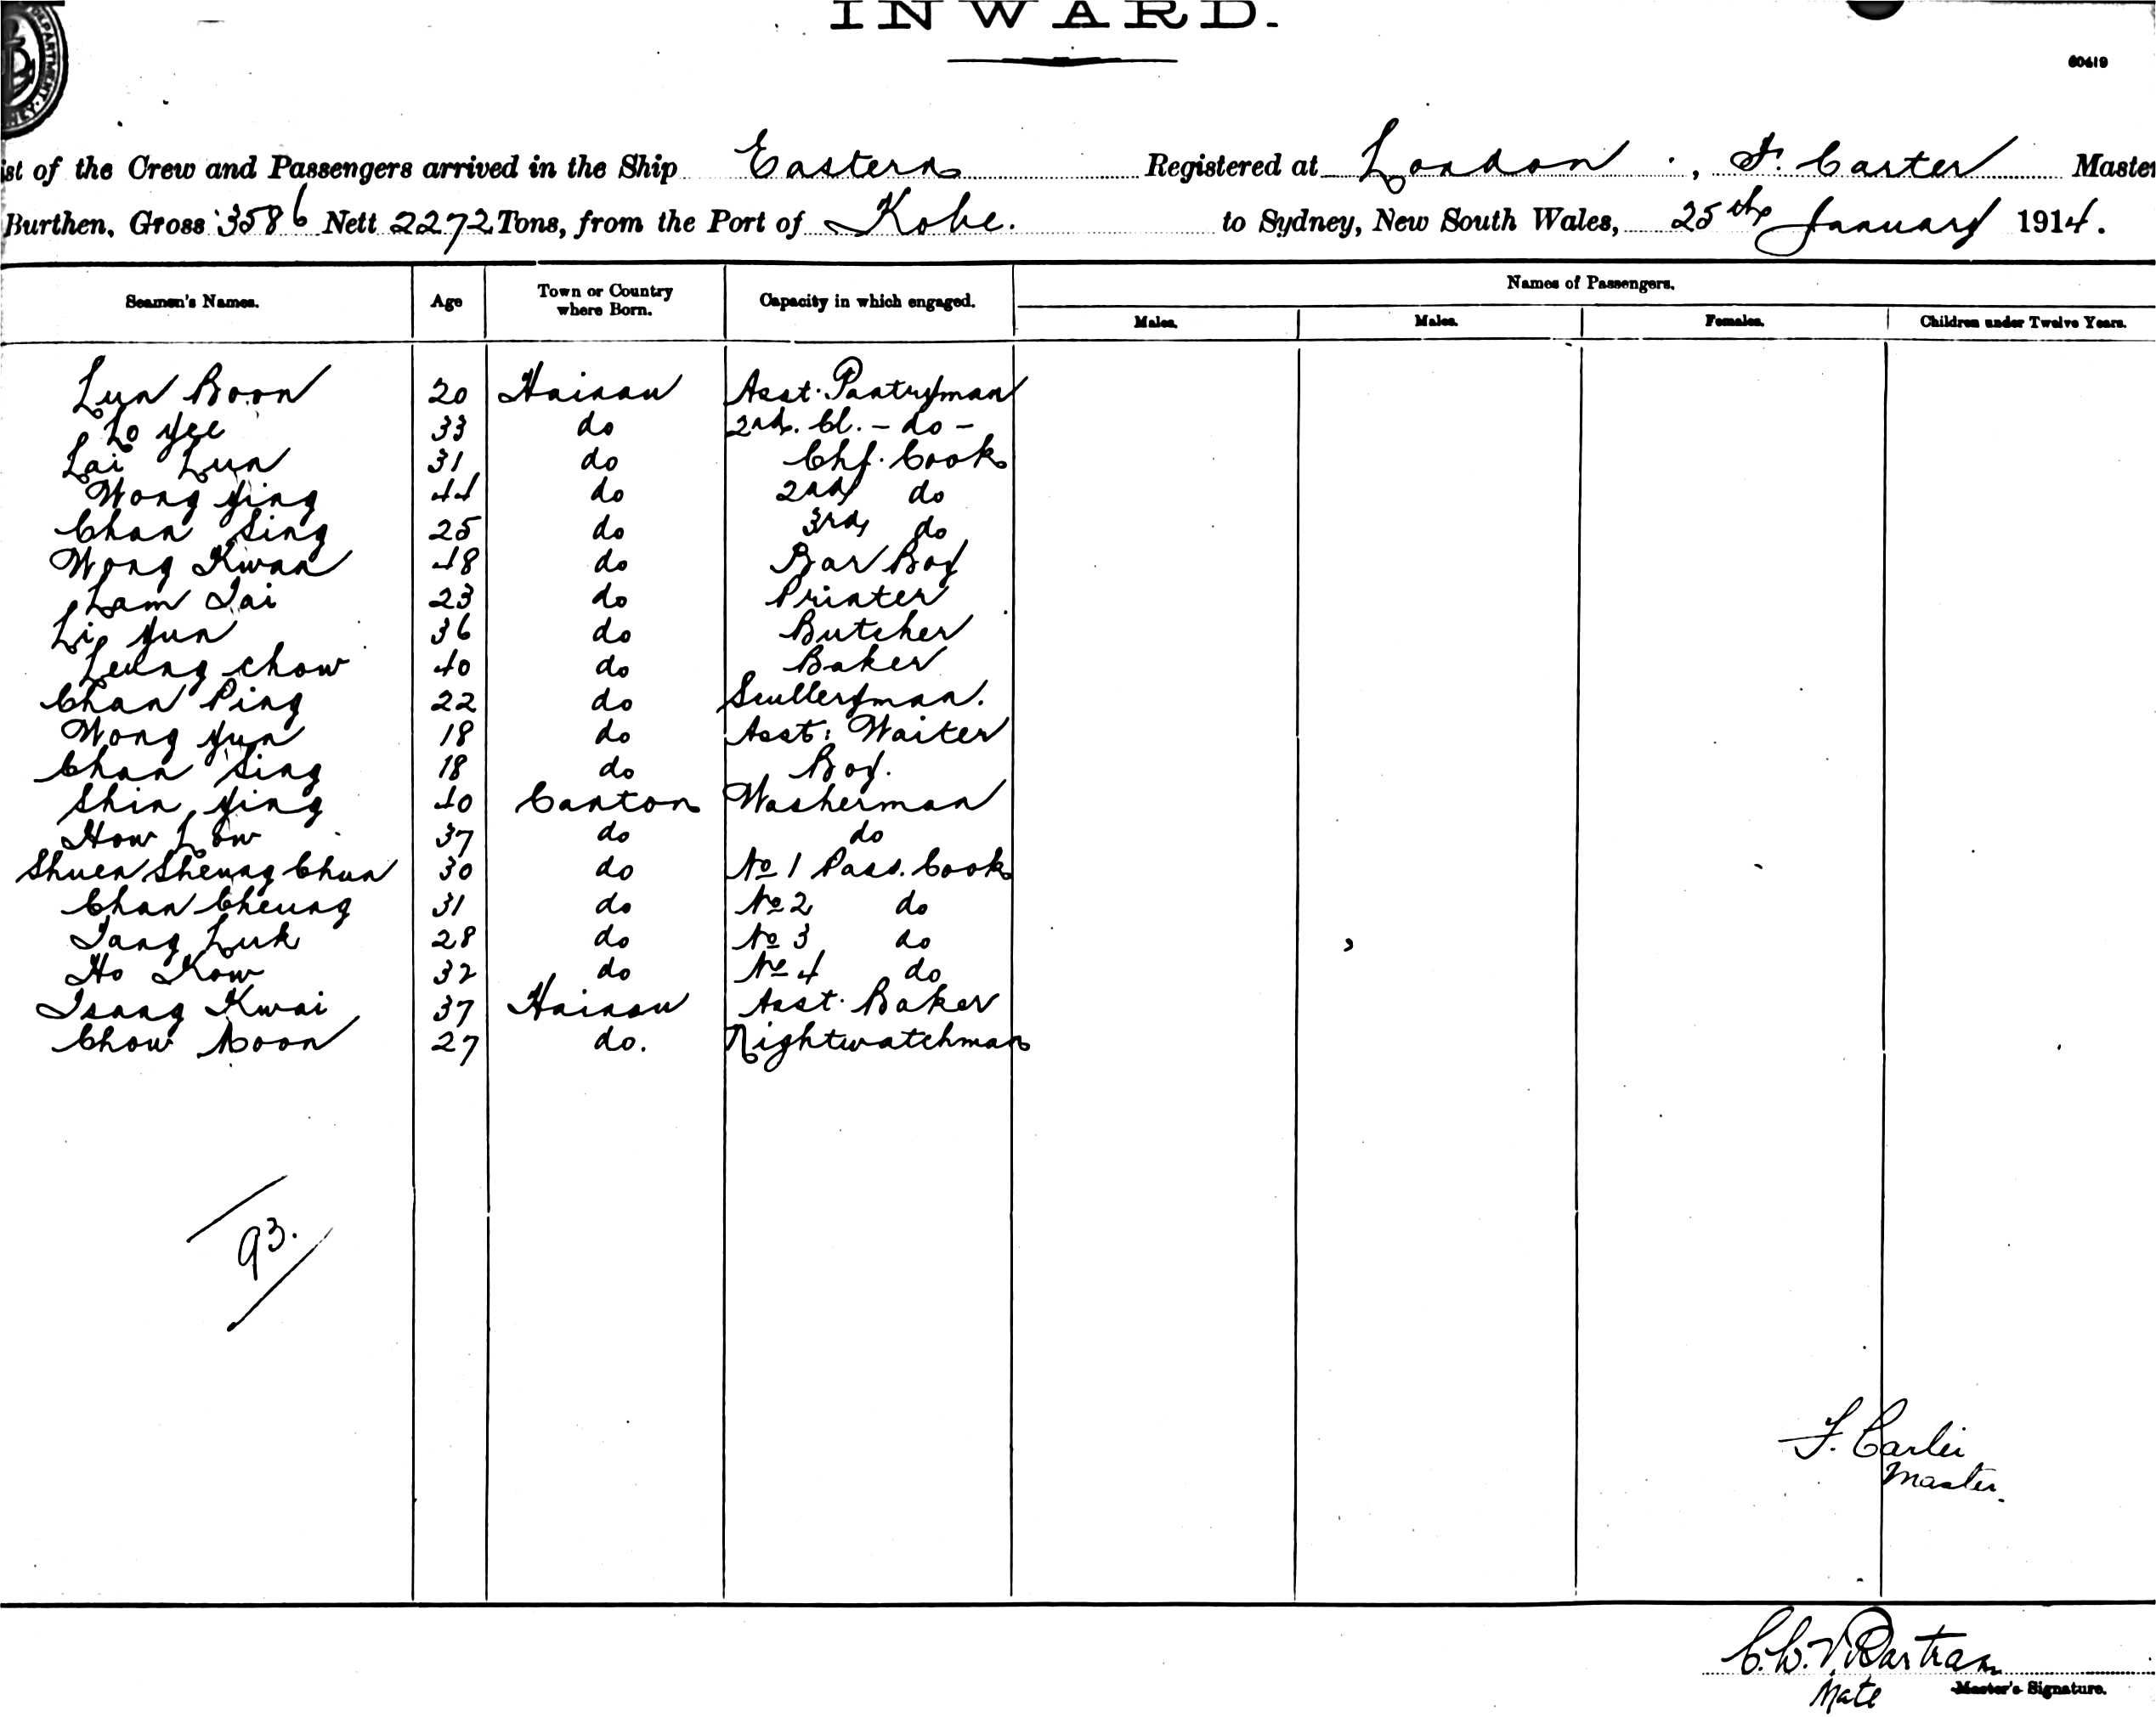 INWARD.
60419
ist of the Crew and Passengers arrived in the Ship Eastern Registered at London, F. Carter Master
Burthen, Gross 3586 Nett 2272 Tons, from the Port of Kobe. to Sydney, New South Wales, 25th January 1914.
Seamen's Names. Age Town or Country where Born. Capacity in which engaged. Names of Passengers.
Males. Males. Females. Children under Twelve Years.
Lun Boon 20 Hainan Asst. Pantryman
Lo Yee 33 do 2nd. Cl. - do -
Lai Lun 31 do Chf. Cook
Wong Ying 44 do 2nd do
Chan Sing 25 do 3rd do
Wong Kwan 48 do Bar Boy
Lam Tai 23 do Printer
Li Yun 36 do Butcher
Leung Chow 40 do Baker
Chan Ping 22 do Sculleryman.
Wong Yun 18 do Asst: Waiter
Chan Sing 18 do Boy.
Shin Ying 40 Canton Washerman
How Low 37 do do
Shuen Sheung Chun 30 do No 1 Pass. Cook
Chan Cheung 31 do No 2 do
Tang Luk 28 do No 3 do
Ho Kow 32 do No 4 do
Tsang Kwai 37 Hainan Asst. Baker
Chow Noon 27 do. Nightwatchman
93.
F. Carter
Master.
C.W.V. Bartram
Mate Master's Signature.